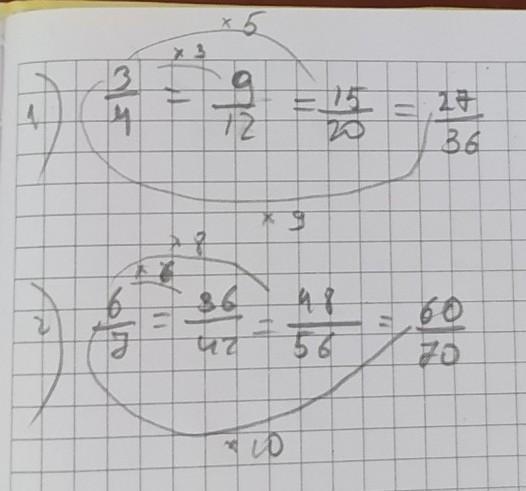 × 5
× 3
1) 3/4 = 9/12 = 15/20 = 27/36
× 9
× 8
× 6
2) 6/7 = 36/42 = 48/56 = 60/70
× 10